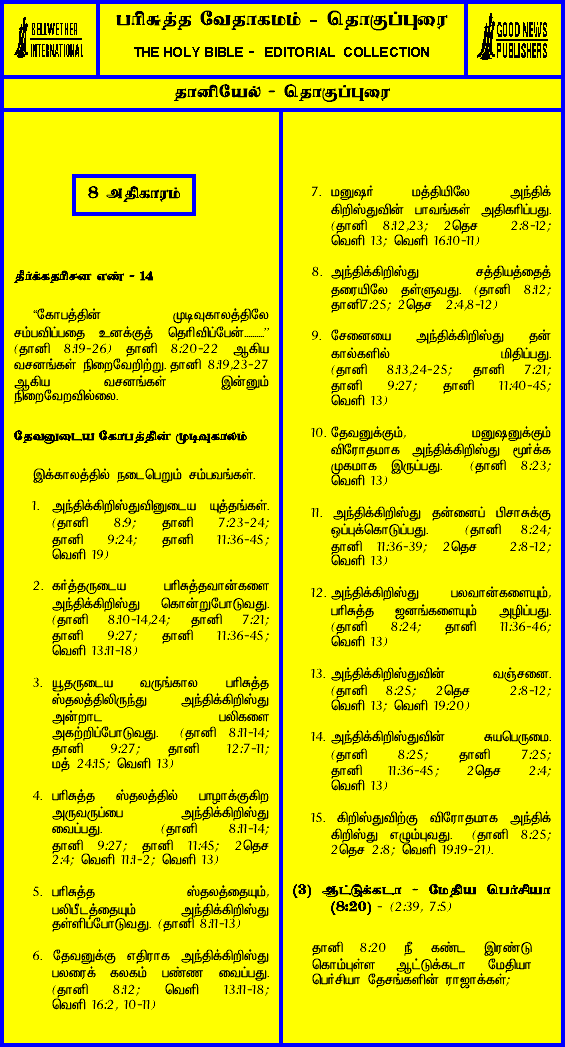 BELLWETHER
INTERNATIONAL
பரிசுத்த வேதாகமம் - தொகுப்புரை
THE HOLY BIBLE - EDITORIAL COLLECTION
GOOD NEWS
PUBLISHERS
தானியேல் - தொகுப்புரை
8 அதிகாரம்
தீர்க்கதரிசன எண் - 14
“கோபத்தின் முடிவுகாலத்திலே
சம்பவிப்பதை உனக்குத் தெரிவிப்பேன்..........”
(தானி 8:19-26) தானி 8:20-22 ஆகிய
வசனங்கள் நிறைவேறிற்று. தானி 8:19,23-27
ஆகிய வசனங்கள் இன்னும்
நிறைவேறவில்லை.
தேவனுடைய கோபத்தின் முடிவுகாலம்
இக்காலத்தில் நடைபெறும் சம்பவங்கள்.
1. அந்திக்கிறிஸ்துவினுடைய யுத்தங்கள்.
(தானி 8:9; தானி 7:23-24;
தானி 9:24; தானி 11:36-45;
வெளி 19)
2. கர்த்தருடைய பரிசுத்தவான்களை
அந்திக்கிறிஸ்து கொன்றுபோடுவது.
(தானி 8:10-14,24; தானி 7:21;
தானி 9:27; தானி 11:36-45;
வெளி 13:11-18)
3. யூதருடைய வருங்கால பரிசுத்த
ஸ்தலத்திலிருந்து அந்திக்கிறிஸ்து
அன்றாட பலிகளை
அகற்றிப்போடுவது. (தானி 8:11-14;
தானி 9:27; தானி 12:7-11;
மத் 24:15; வெளி 13)
4. பரிசுத்த ஸ்தலத்தில் பாழாக்குகிற
அருவருப்பை அந்திக்கிறிஸ்து
வைப்பது. (தானி 8:11-14;
தானி 9:27; தானி 11:45; 2தெச
2:4; வெளி 11:1-2; வெளி 13)
5. பரிசுத்த ஸ்தலத்தையும்,
பலிபீடத்தையும் அந்திக்கிறிஸ்து
தள்ளிப்போடுவது. (தானி 8:11-13)
6. தேவனுக்கு எதிராக அந்திக்கிறிஸ்து
பலரைக் கலகம் பண்ண வைப்பது.
(தானி 8:12; வெளி 13:11-18;
வெளி 16:2, 10-11)
7. மனுஷர் மத்தியிலே அந்திக்
கிறிஸ்துவின் பாவங்கள் அதிகரிப்பது.
(தானி 8:12,23; 2தெச 2:8-12;
வெளி 13; வெளி 16:10-11)
8. அந்திக்கிறிஸ்து சத்தியத்தைத்
தரையிலே தள்ளுவது. (தானி 8:12;
தானி7:25; 2தெச 2:4,8-12)
9. சேனையை அந்திக்கிறிஸ்து தன்
கால்களில் மிதிப்பது.
(தானி 8:13,24-25; தானி 7:21;
தானி 9:27; தானி 11:40-45;
வெளி 13)
10. தேவனுக்கும், மனுஷனுக்கும்
விரோதமாக அந்திக்கிறிஸ்து மூர்க்க
முகமாக இருப்பது. (தானி 8:23;
வெளி 13)
11. அந்திக்கிறிஸ்து தன்னைப் பிசாசுக்கு
ஒப்புக்கொடுப்பது. (தானி 8:24;
தானி 11:36-39; 2தெச 2:8-12;
வெளி 13)
12. அந்திக்கிறிஸ்து பலவான்களையும்,
பரிசுத்த ஜனங்களையும் அழிப்பது.
(தானி 8:24; தானி 11:36-46;
வெளி 13)
13. அந்திக்கிறிஸ்துவின் வஞ்சனை.
(தானி 8:25; 2தெச 2:8-12;
வெளி 13; வெளி 19:20)
14. அந்திக்கிறிஸ்துவின் சுயபெருமை.
(தானி 8:25; தானி 7:25;
தானி 11:36-45; 2தெச 2:4;
வெளி 13)
15. கிறிஸ்துவிற்கு விரோதமாக அந்திக்
கிறிஸ்து எழும்புவது. (தானி 8:25;
2தெச 2:8; வெளி 19:19-21).
(3) ஆட்டுக்கடா - மேதிய பெர்சியா
(8:20) - (2:39, 7:5)
தானி 8:20 நீ கண்ட இரண்டு
கொம்புள்ள ஆட்டுக்கடா மேதியா
பெர்சியா தேசங்களின் ராஜாக்கள்;